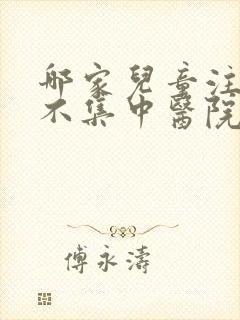 郍家兒童注
不集中醫院
傅永濤